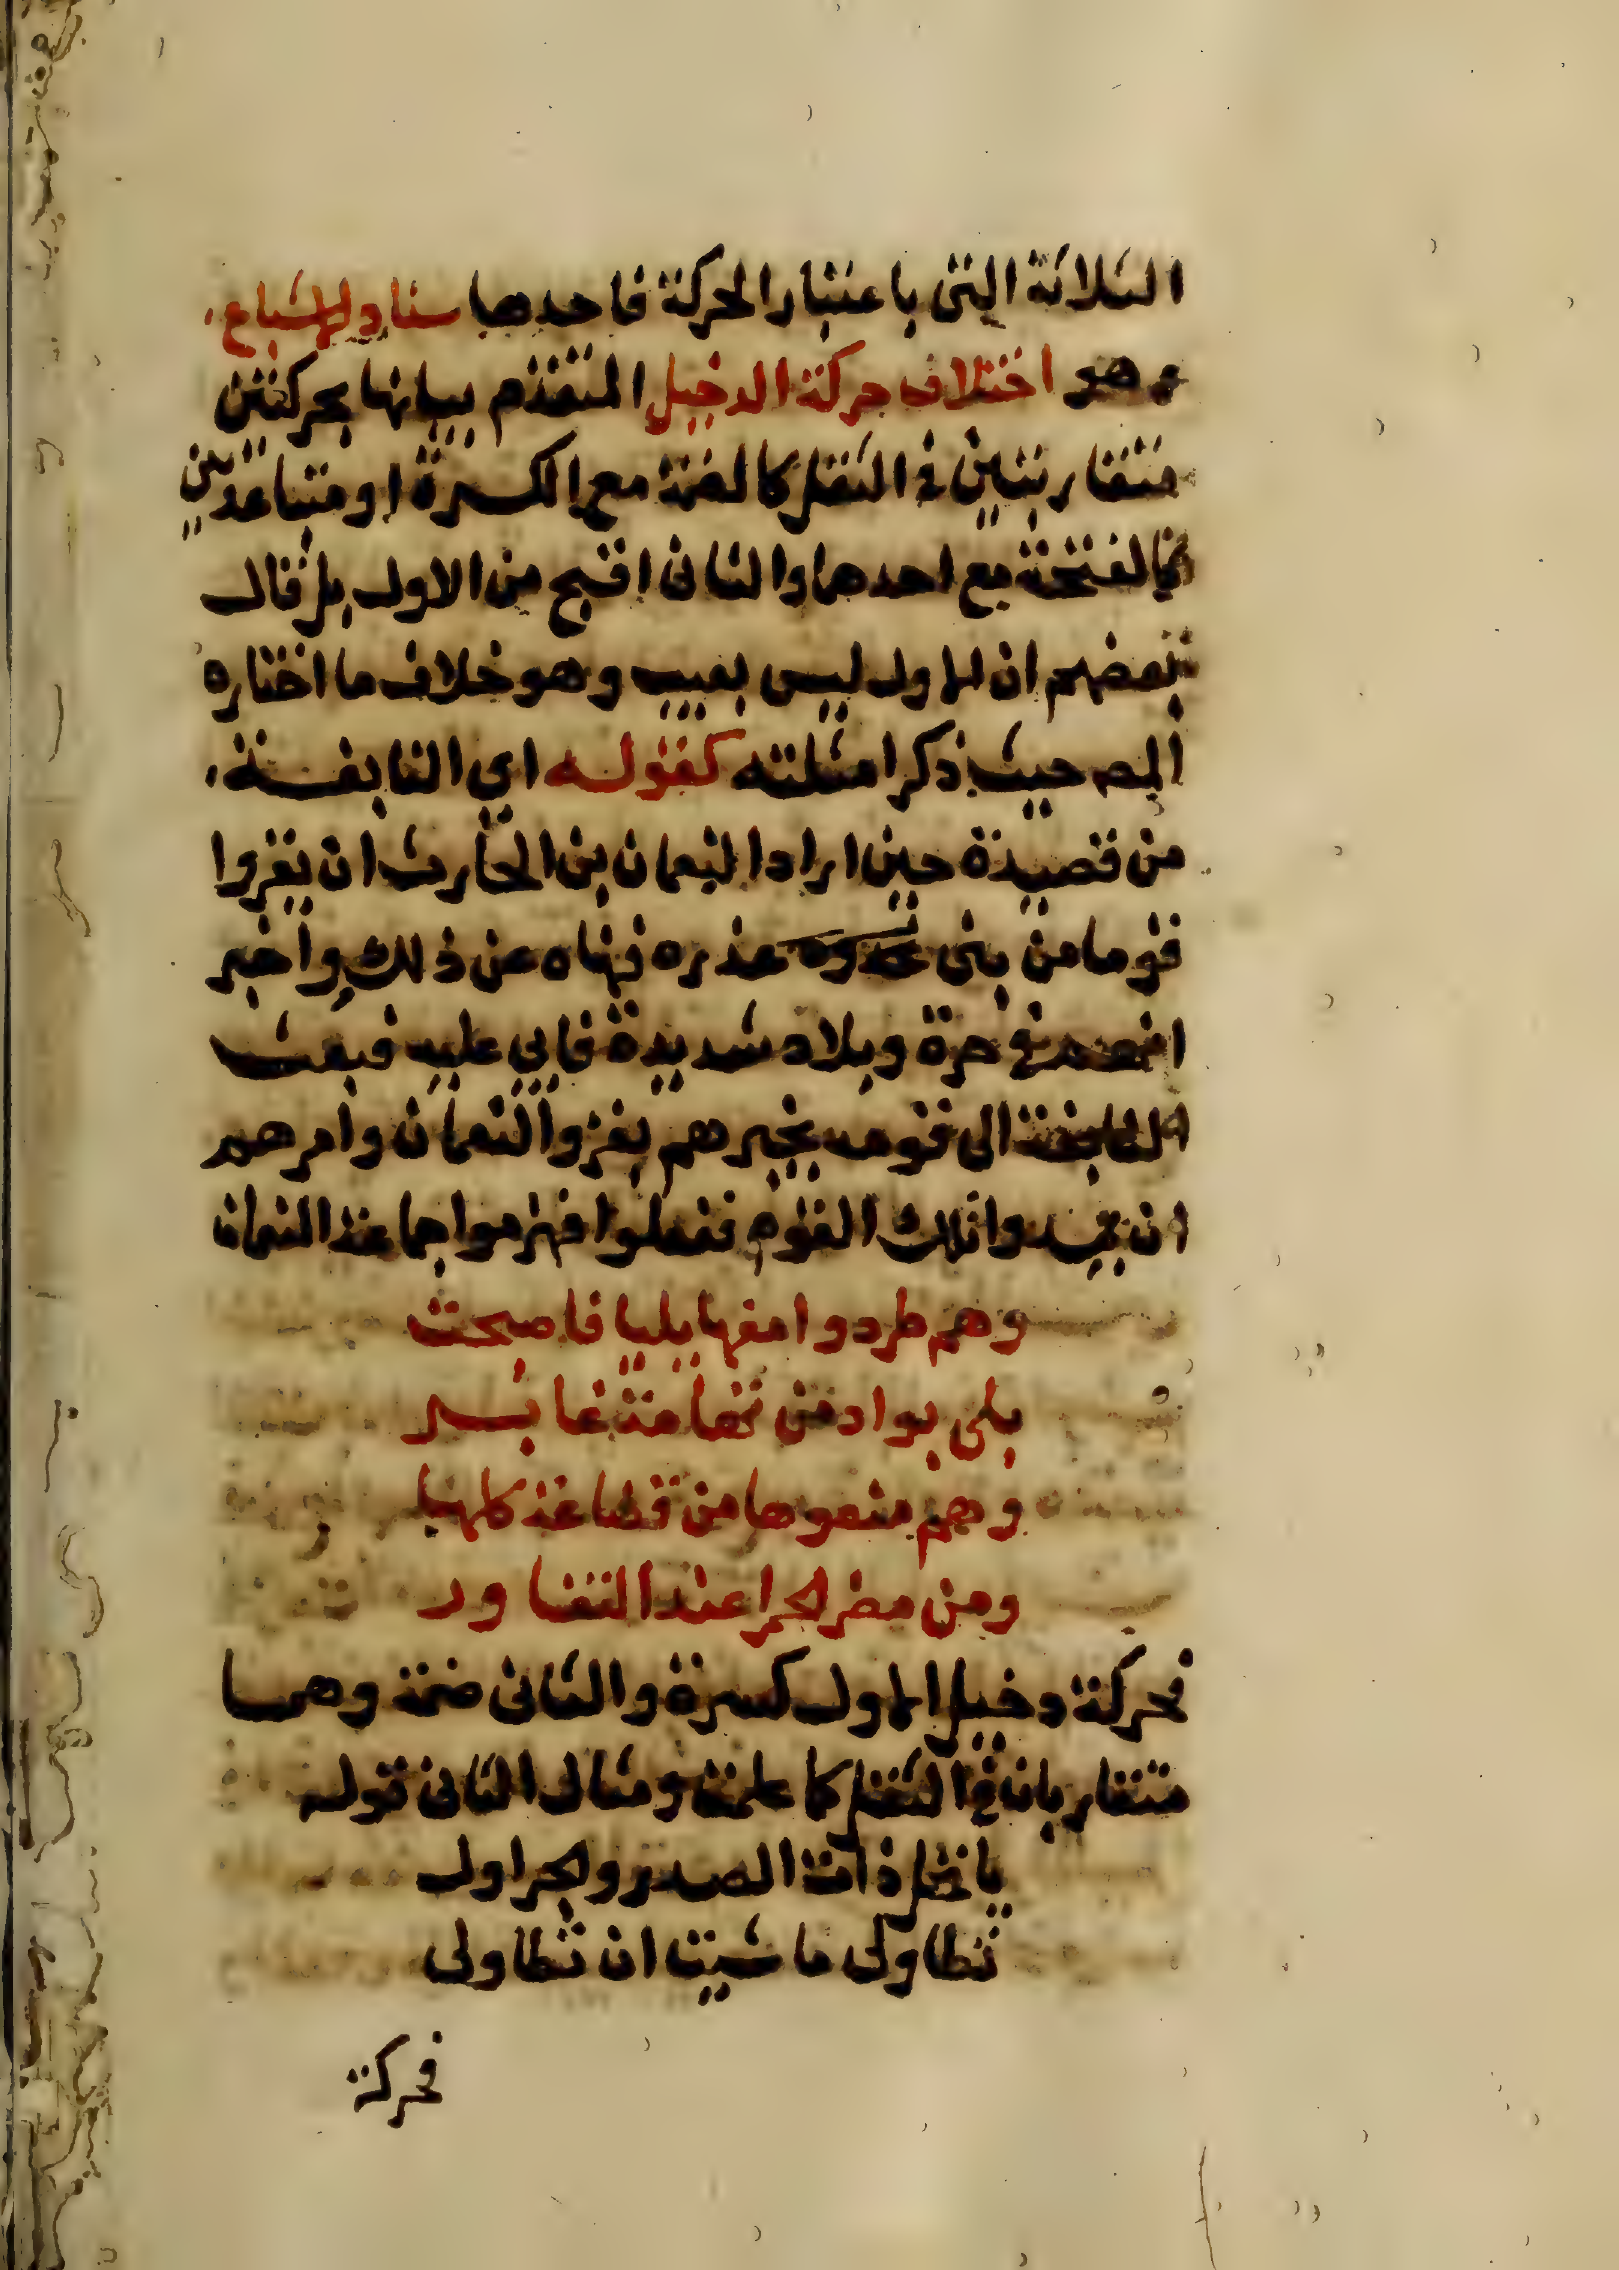 الثلاثة التى باعتبار الحركة فاحدها سناد الاشباع
وهو اختلاف حركة الدخيل المتقدم بيانها بحركتين
متقاربتين في الثقل كالضمة مع الكسرة او متباعدتين
كالفتحة مع احدهما والثانى اقبح من الاول بل قال
بعضهم ان الاول ليس بعيب وهو خلاف ما اختاره
المصـ حيث ذكر امثلته كقوله اي النابغة
من قصيدة حين اراد النعمان بن الحارث ان يغزوا
قوما من بنى عذره فنهاه عن ذلك واخبر
انهم في حرة وبلاد شديدة فابي عليه فبعث
النابغة الى قومه يخبرهم بغزو النعمان وامرهم
ان يميدوا تلك القوم ففعلوا فهزموا جماعة النعمان
وهم طردوا منها بليا فاصبحت
بلى بواد من تهامة غابر
وهم منعوها من قضاعة كلها
ومن مضر الحمرا عند التغاور
فحركة دخيل الاول كسرة والثانى ضمة وهما
متقاربان في الثقل كما علمت ومثال الثانى قوله
يا نخل ذات السدر والجراول
تطاولى ما شيت ان تطاولى
فحركة